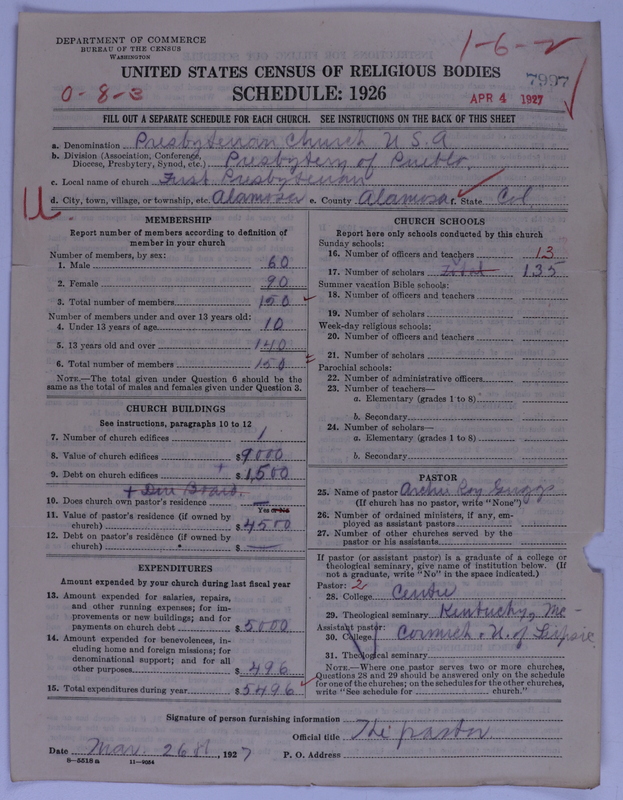 DEPARTMENT OF COMMERCE
BUREAU OF THE CENSUS
WASHINGTON
1-6-2
7997
UNITED STATES CENSUS OF RELIGIOUS BODIES
0-8-3
SCHEDULE: 1926
APR 4 1927
FILL OUT A SEPARATE SCHEDULE FOR EACH CHURCH. SEE INSTRUCTIONS ON THE BACK OF THIS SHEET
a. Denomination Presbyterian Church U S A
b. Division (Association, Conference, Diocese, Presbytery, Synod, etc.) Presbytery of Pueblo
c. Local name of church First Presbyterian
d. City, town, village, or township, etc. Alamosa e. County Alamosa f. State Col.
MEMBERSHIP
Report number of members according to definition of
member in your church
Number of members, by sex:
1. Male 60
2. Female 90
3. Total number of members 150
Number of members under and over 13 years old:
4. Under 13 years of age 10
5. 13 years old and over 140
6. Total number of members 150
NOTE.—The total given under Question 6 should be the
same as the total of males and females given under Question 3.
CHURCH BUILDINGS
See instructions, paragraphs 10 to 12
7. Number of church edifices 1
8. Value of church edifices $9000
9. Debt on church edifices $1,500
10. Does church own pastor's residence
Yes or No
11. Value of pastor's residence (if owned by
church) $4500
12. Debt on pastor's residence (if owned by
church) $ —
EXPENDITURES
Amount expended by your church during last fiscal year
13. Amount expended for salaries, repairs,
and other running expenses; for im-
provements or new buildings; and for
payments on church debt $5000
14. Amount expended for benevolences, in-
cluding home and foreign missions; for
denominational support; and for all
other purposes $496
15. Total expenditures during year $5496
CHURCH SCHOOLS
Report here only schools conducted by this church
Sunday schools:
16. Number of officers and teachers 13
17. Number of scholars Total 135
Summer vacation Bible schools:
18. Number of officers and teachers
19. Number of scholars
Week-day religious schools:
20. Number of officers and teachers
21. Number of scholars
Parochial schools:
22. Number of administrative officers
23. Number of teachers—
a. Elementary (grades 1 to 8)
b. Secondary
24. Number of scholars—
a. Elementary (grades 1 to 8)
b. Secondary
PASTOR
25. Name of pastor Archie Roy Griggs
(If church has no pastor, write "None")
26. Number of ordained ministers, if any, em-
ployed as assistant pastors
27. Number of other churches served by the
pastor or his assistants
If pastor (or assistant pastor) is a graduate of a college or
theological seminary, give name of institution below. (If
not a graduate, write "No" in the space indicated.)
Pastor: 2
28. College Centre
29. Theological seminary Kentucky, Mc-
Assistant pastor:
30. College Cormick & U. of Leipsic
31. Theological seminary
NOTE.—Where one pastor serves two or more churches,
Questions 28 and 29 should be answered only on the schedule
for one of the churches; on the schedules for the other churches,
write "See schedule for church."
Signature of person furnishing information
Official title The pastor
Date Mar. 26th, 1927 P. O. Address
8-5518a 11-9034